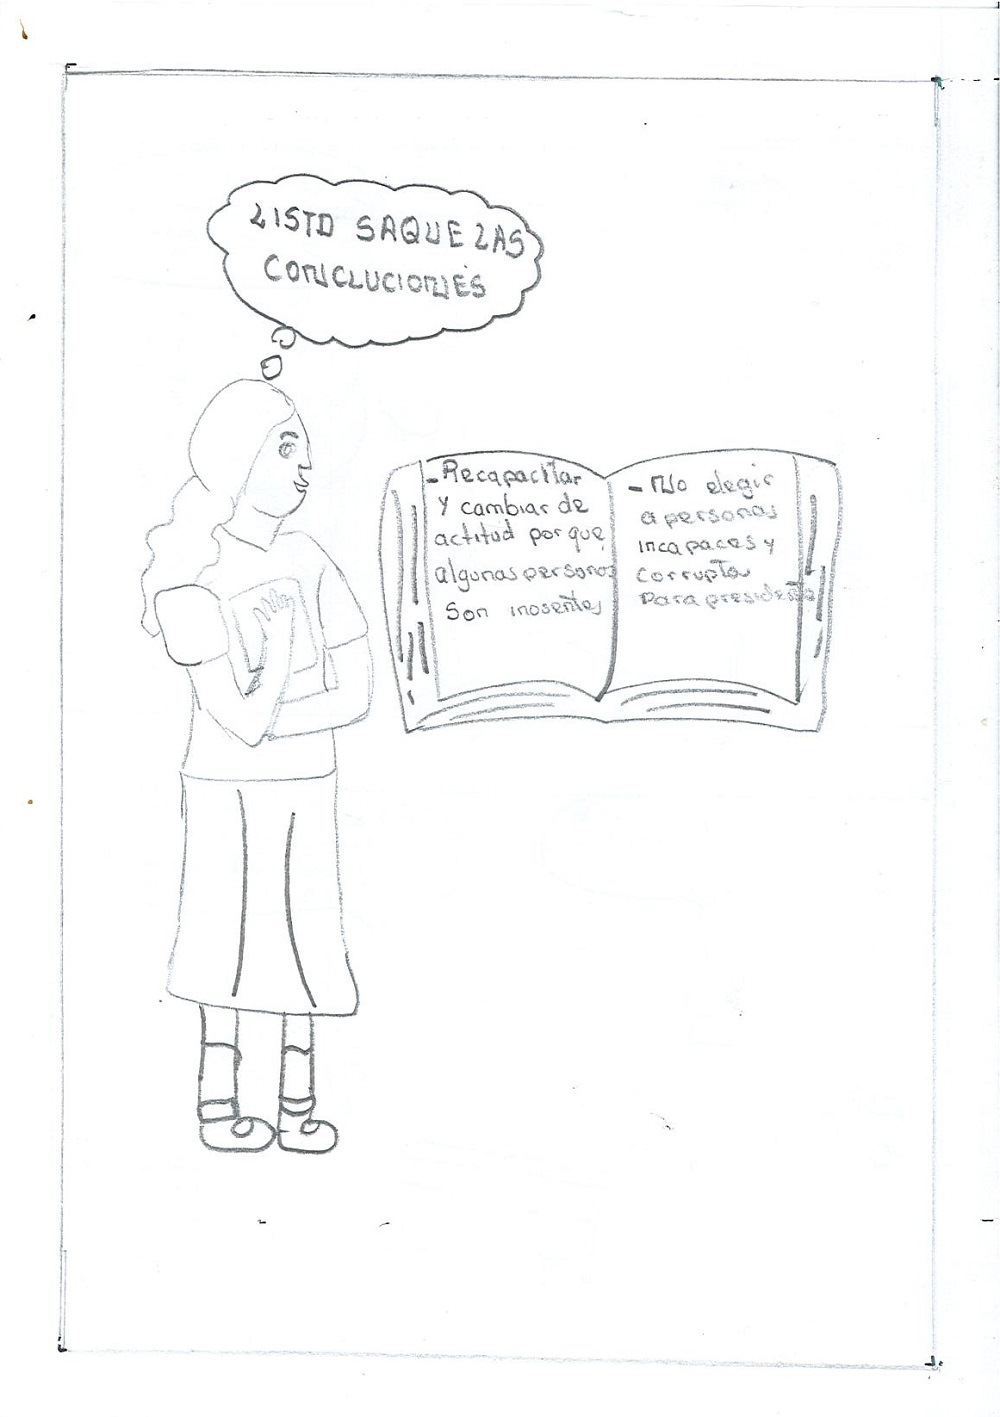 LISTO SAQUE LAS
CONCLUCIONES
- Recapacitar
y cambiar de
actitud por que
algunas personas
Son inosentes
- No elegir
a personas
incapaces y
corruptas
Para presidente